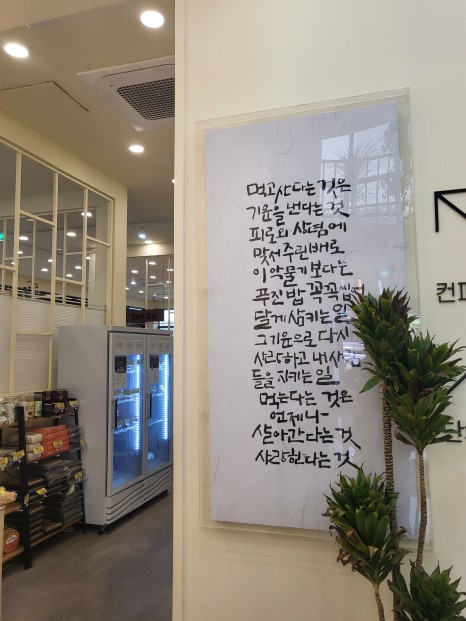 먹고산다는 것은
기운을 낸다는 것
피로와 상념에
맞서 주린배로
이 악물기보다는
푸진 밥 꼭꼭 씹어
달게 삼키는 일
그 기운으로 다시
사랑하고 내 사람
들을 지키는 일
먹는다는 것은
언제나
살아간다는 것
사랑한다는 것